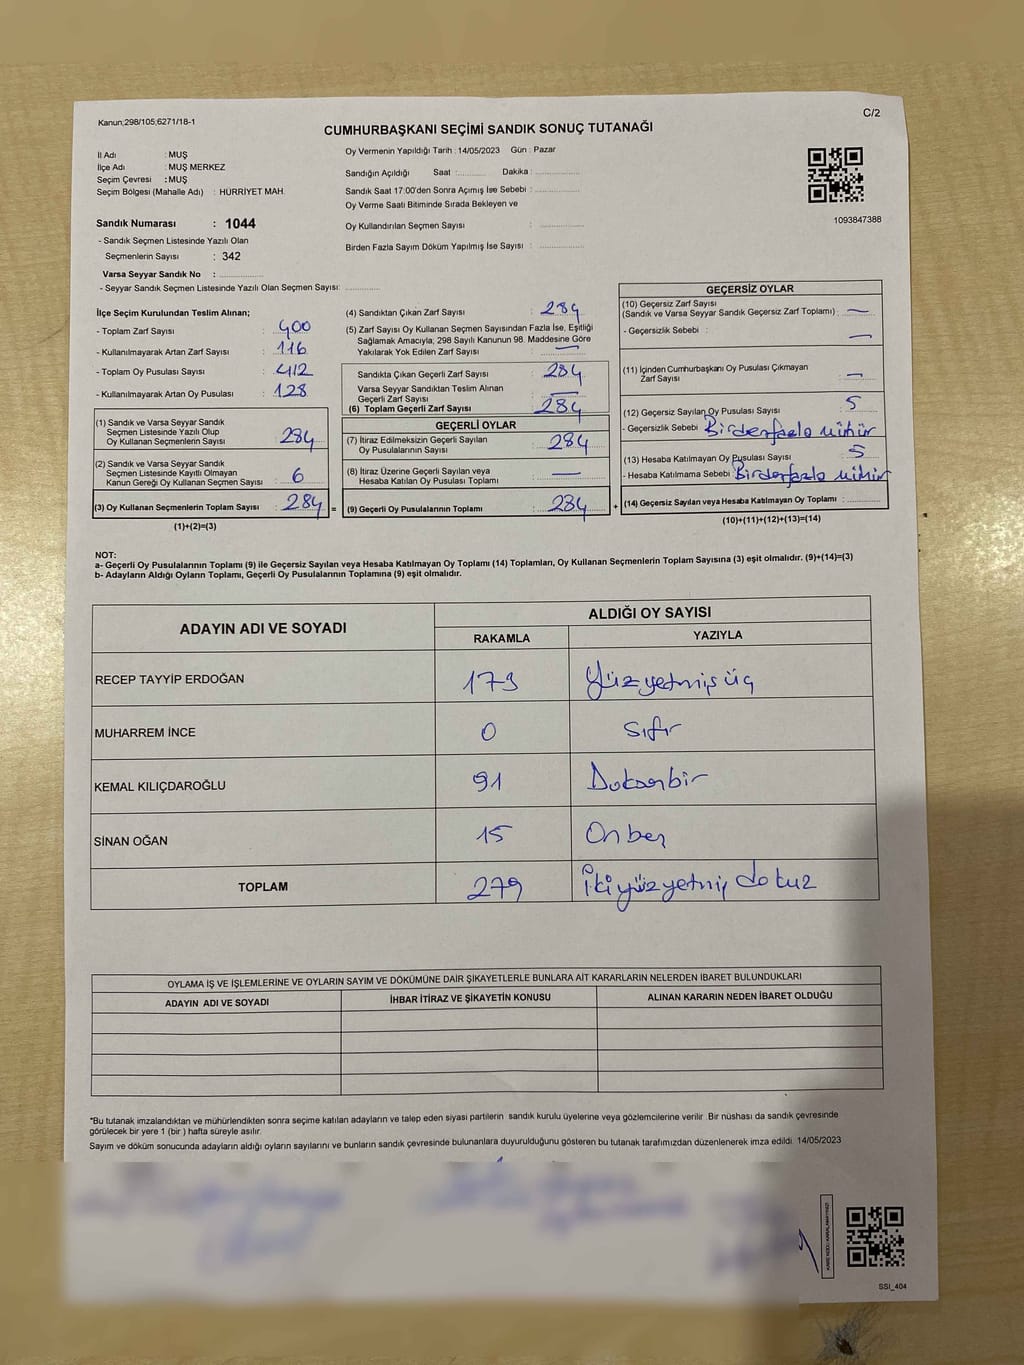 Kanun;298/105;6271/18-1
C/2
CUMHURBAŞKANI SEÇİMİ SANDIK SONUÇ TUTANAĞI
İl Adı : MUŞ
İlçe Adı : MUŞ MERKEZ
Seçim Çevresi : MUŞ
Seçim Bölgesi (Mahalle Adı) : HÜRRİYET MAH.
Sandık Numarası : 1044
- Sandık Seçmen Listesinde Yazılı Olan
Seçmenlerin Sayısı : 342
Varsa Seyyar Sandık No : ..............
- Seyyar Sandık Seçmen Listesinde Yazılı Olan Seçmen Sayısı: ..............
Oy Vermenin Yapıldığı Tarih : 14/05/2023 Gün : Pazar
Sandığın Açıldığı Saat : .......... Dakika : ..............
Sandık Saat 17:00'den Sonra Açımış İse Sebebi : ..............
Oy Verme Saati Bitiminde Sırada Bekleyen ve
Oy Kullandırılan Seçmen Sayısı : ..............
Birden Fazla Sayım Döküm Yapılmış İse Sayısı : ..............
1093847388
İlçe Seçim Kurulundan Teslim Alınan;
- Toplam Zarf Sayısı : 400
- Kullanılmayarak Artan Zarf Sayısı : 116
- Toplam Oy Pusulası Sayısı : 412
- Kullanılmayarak Artan Oy Pusulası : 128
(1) Sandık ve Varsa Seyyar Sandık
Seçmen Listesinde Yazılı Olup
Oy Kullanan Seçmenlerin Sayısı : 284
(2) Sandık ve Varsa Seyyar Sandık
Seçmen Listesinde Kayıtlı Olmayan
Kanun Gereği Oy Kullanan Seçmen Sayısı : 6
(3) Oy Kullanan Seçmenlerin Toplam Sayısı : 284 =
(1)+(2)=(3)
(4) Sandıktan Çıkan Zarf Sayısı : 284
(5) Zarf Sayısı Oy Kullanan Seçmen Sayısından Fazla İse, Eşitliği
Sağlamak Amacıyla; 298 Sayılı Kanunun 98. Maddesine Göre
Yakılarak Yok Edilen Zarf Sayısı : —
Sandıkta Çıkan Geçerli Zarf Sayısı : 284
Varsa Seyyar Sandıktan Teslim Alınan
Geçerli Zarf Sayısı : —
(6) Toplam Geçerli Zarf Sayısı : 284
GEÇERLİ OYLAR
(7) İtiraz Edilmeksizin Geçerli Sayılan
Oy Pusulasının Sayısı : 284
(8) İtiraz Üzerine Geçerli Sayılan veya
Hesaba Katılan Oy Pusulası Toplamı : —
(9) Geçerli Oy Pusulalarının Toplamı : 284 +
GEÇERSİZ OYLAR
(10) Geçersiz Zarf Sayısı
(Sandık ve Varsa Seyyar Sandık Geçersiz Zarf Toplamı) : —
- Geçersizlik Sebebi : —
(11) İçinden Cumhurbaşkanı Oy Pusulası Çıkmayan
Zarf Sayısı : —
(12) Geçersiz Sayılan Oy Pusulası Sayısı : 5
- Geçersizlik Sebebi : Birdenfazla mühür
(13) Hesaba Katılmayan Oy Pusulası Sayısı : 5
- Hesaba Katılmama Sebebi : Birdenfazla mühür
(14) Geçersiz Sayılan veya Hesaba Katılmayan Oy Toplamı : ..........
(10)+(11)+(12)+(13)=(14)
NOT:
a- Geçerli Oy Pusulalarının Toplamı (9) ile Geçersiz Sayılan veya Hesaba Katılmayan Oy Toplamı (14) Toplamları, Oy Kullanan Seçmenlerin Toplam Sayısına (3) eşit olmalıdır. (9)+(14)=(3)
b- Adayların Aldığı Oyların Toplamı, Geçerli Oy Pusulalarının Toplamına (9) eşit olmalıdır.
ADAYIN ADI VE SOYADI
ALDIĞI OY SAYISI
RAKAMLA YAZIYLA
RECEP TAYYİP ERDOĞAN 173 Yüzyetmişüç
MUHARREM İNCE 0 sıfır
KEMAL KILIÇDAROĞLU 91 Doksanbir
SİNAN OĞAN 15 Onbeş
TOPLAM 279 İkiyüzyetmiş dokuz
OYLAMA İŞ VE İŞLEMLERİNE VE OYLARIN SAYIM VE DÖKÜMÜNE DAİR ŞİKAYETLERLE BUNLARA AİT KARARLARIN NELERDEN İBARET BULUNDUKLARI
ADAYIN ADI VE SOYADI İHBAR İTİRAZ VE ŞİKAYETİN KONUSU ALINAN KARARIN NEDEN İBARET OLDUĞU
*Bu tutanak imzalandıktan ve mühürlendikten sonra seçime katılan adayların ve talep eden siyasi partilerin sandık kurulu üyelerine veya gözlemcilerine verilir. Bir nüshası da sandık çevresinde
görülecek bir yere 1 (bir ) hafta süreyle asılır.
Sayım ve döküm sonucunda adayların aldığı oyların sayılarını ve bunların sandık çevresinde bulunanlara duyurulduğunu gösteren bu tutanak tarafımızdan düzenlenerek imza edildi. 14/05/2023
SSI_404